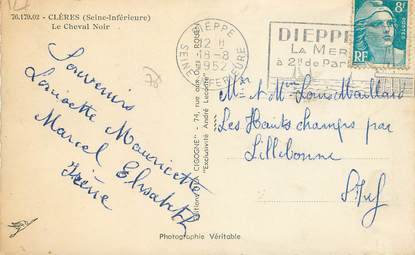 76.179.02 - CLÈRES (Seine-Inférieure)
Le Cheval Noir
Souvenirs
Mauricette
Marcel Elisabeth
Irène
DIEPPE
12 H
18-8
1952
SEINE INFÉRIEURE
DIEPPE
LA MER
à 2H de Paris
8F
POSTES
RF
"LA CIGOGNE" - 74, rue
"Exclusivité André Leconte"
Mr & Mme Louis Maillard
Les Hauts champs par
Lillebonne
S. Inf
Photographie Véritable